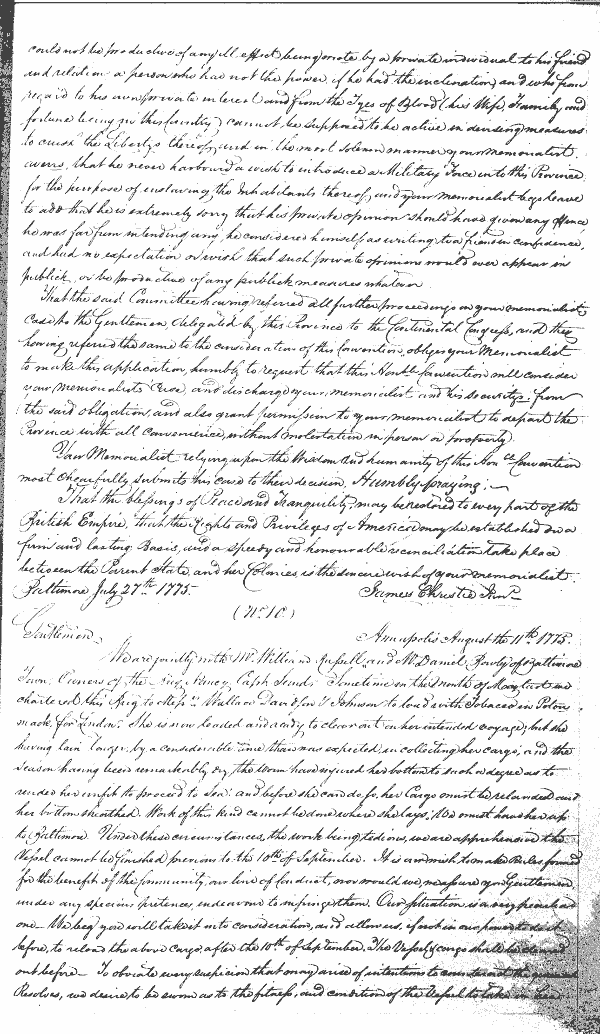 could not be productive of any ill effect being wrote by a private individual to his friend
and relation a person who had not the power, if he had the inclination, and who from
regard to his own private interest and from the Tyes of Blood (his Wife, Family and
fortune being in this Country) cannot be supposed to be active in devising measures
to crush the Libertys thereof, and in the most solemn manner your memorialist
avers, that he never harboured a wish to introduce a Military Force into this Province
for the purpose of enslaving the Inhabitants thereof, and your memorialist begs leave
to add that he is extremely sorry that his private opinion should have given any offence,
he was far from intending any, he considered himself as writing to a friend in confidence,
and had no expectation or wish that such private opinions would ever appear in
publick, or be productive of any publick measures whatever
That the said Committee having referred all further proceedings on your memorialists
case to the Gentlemen, delegated by this Province to the Continental Congress, and they
having referred the same to the consideration of this Convention, obliges your Memorialist
to make this application, humbly to request that this Honble Convention will consider
your memorialists Case, and discharge your memorialist and his securitys from
the said obligation, and also grant permission to your memorialist to depart the
Province with all convenience, without molestation in person or property.
Your Memorialist relying upon the Wisdom and humanity of this Honble Convention
most chearfully submits his case to their decision, Humbly praying.
That the blessings of Peace and Tranquility, may be restored to every part of the
British Empire, that the Rights and Privileges of America may be established on a
firm and lasting Basis, and a speedy and honourable reconciliation take place
between the Parent State, and her Colonies, is the sincere wish of your memorialist
Baltimore July 27th 1775. James Christie Junr.
(No. 10)
Gentlemen Annapolis August the 11th 1775.
We are jointly with Mr. William Russell, and Mr. Daniel Bowly of Baltimore
Town, Owners of the Brig Nancy, Capth. Sometime in the month of May last we
chartered this Brig to Messrs. Wallace Davidson & Johnson to load with Tobacco in Potow
mack, for London. She is now loaded and ready to clear out on her intended voyage, but she
having lain longer, by a considerable time than was expected, in collecting her cargo, and the
season having been remarkably dry, the worm have injured her bottom to such a degree as to
render her unfit to proceed to Sea: and before she can do so, her Cargo must be relanded and
her bottom sheathed. Work of this kind cannot be done where she lays, We must have her up
to Baltimore. Under these circumstances, the work being tedious, we are apprehensive the
Vessel cannot be finished previous to the 10th of September. It is our wish to make Rules formed
for the benefit of the Community, our line of conduct, nor would we, we assure you Gentlemen
under any specious pretences, endeavour to infringe them. Our situation is a very peculiar
one. We beg you will take it into consideration, and allow us, if not in our power to do it
before, to reload the above cargo, after the 10th of September, The Vessel & cargo shall be cleared
out before. To obviate every suspicion that may arise of intentions to the general
Resolves, we desire to be sworn as to the fitness, and condition of the Vessel to take in